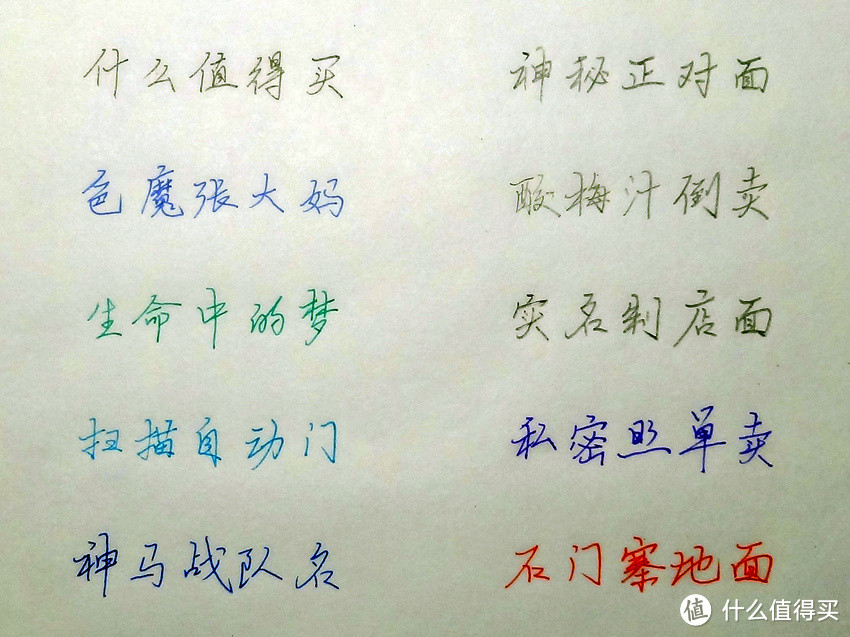 什么值得买 神秘正对面
色魔張大妈 酸梅汁倒卖
生命中的梦 实名制店面
扫描自动门 私密照单卖
神马战队名 石门寨地面
值 什么值得买